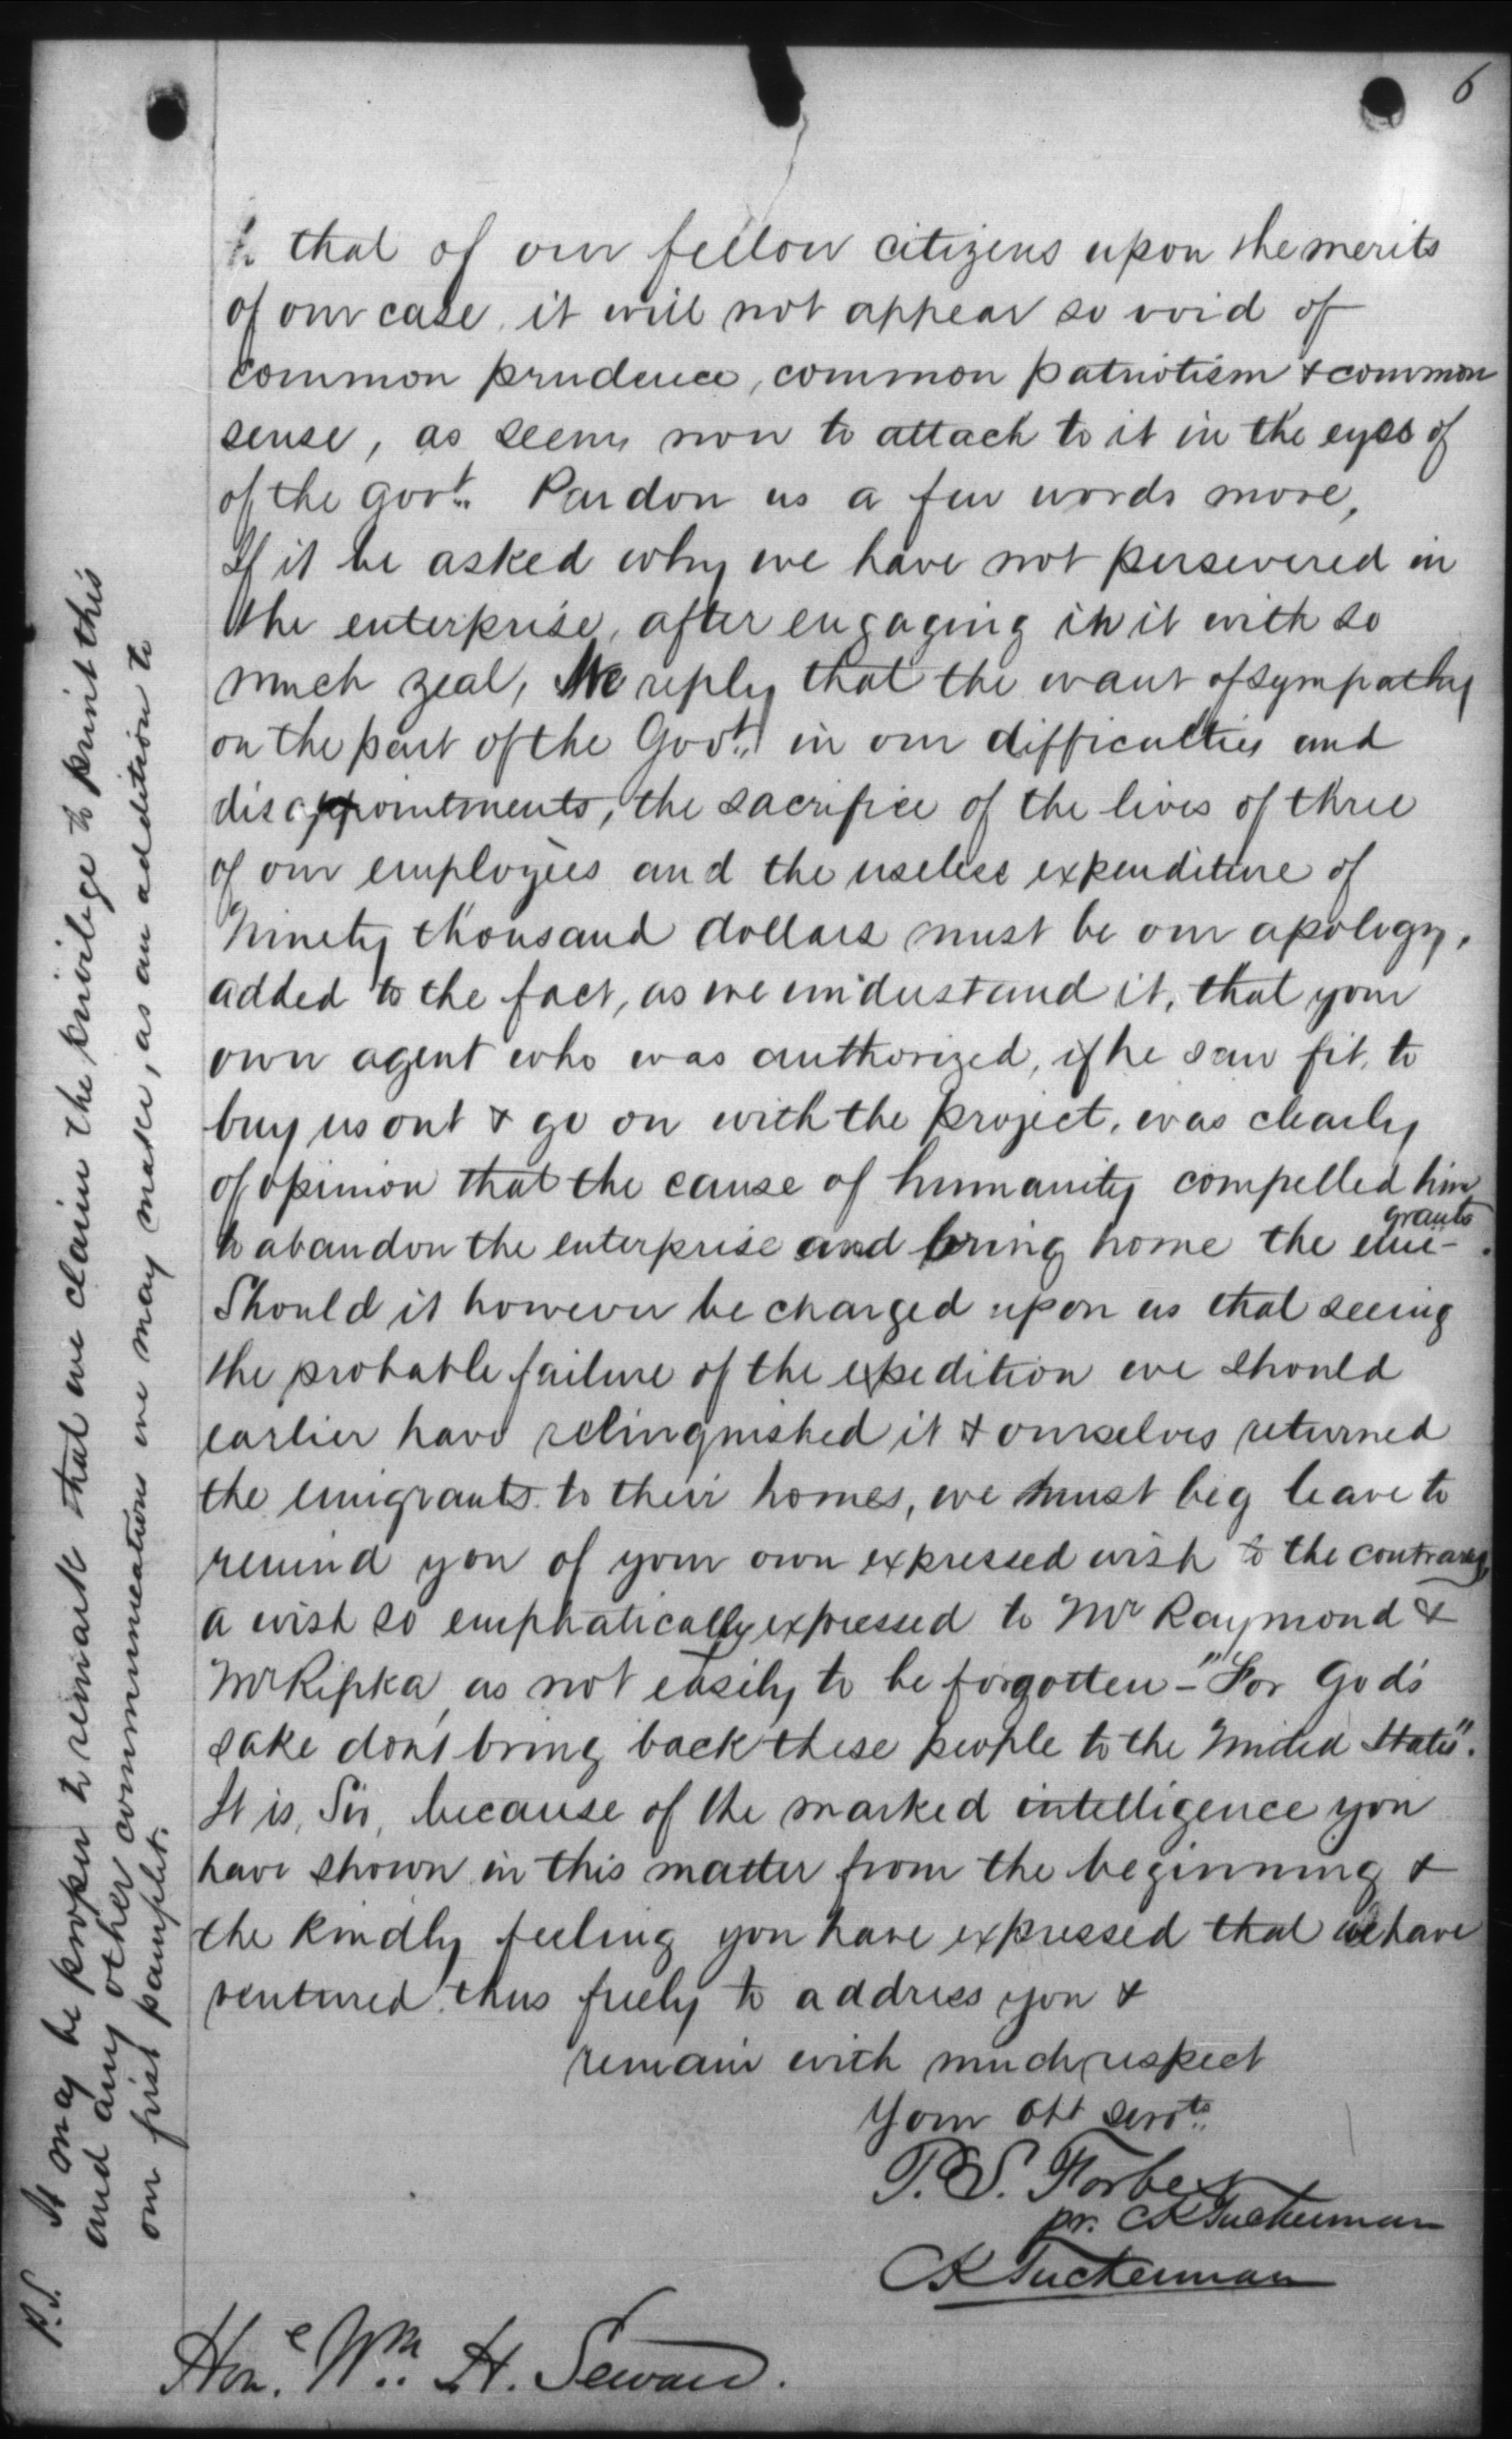 6
to that of our fellow citizens upon the merits
of our case, it will not appear so void of
common prudence, common patriotism & common
sense, as seems now to attach to it in the eyes of
of the Govt. Pardon us a few words more,
If it be asked why we have not persevered in
the enterprise, after engaging in it with so
much zeal, We reply that the want of sympathy
on the part of the Govt. in our difficulties and
disappointments, the sacrifice of the lives of three
of our employees and the useless expenditure of
Ninety thousand dollars must be our apology,
added to the fact, as we understand it, that your
own agent who was authorized, if he saw fit, to
buy us out & go on with the project, was clearly
of opinion that the cause of humanity compelled him
to abandon the enterprise and bring home the emi-grants.
Should it however be charged upon us that seeing
the probable failure of the expedition we should
earlier have relinquished it & ourselves returned
the emigrants to their homes, we must beg leave to
remind you of your own expressed wish to the contrary,
a wish so emphatically expressed to Mr Raymond &
Mr Ripka, as not easily to be forgotten - "For God's
sake don't bring back these people to the United States".
It is, Sir, because of the marked intelligence you
have shown in this matter from the beginning &
the kindly feeling you have expressed that we have
ventured thus freely to address you &
remain with much respect
Your Obt servts.
P. S. Forbes
pr. CK Tuckerman
CK Tuckerman
Hone. Wm. H. Seward.
P.S. It may be proper to remark that we claim the privilege to print this
and any other communications we may make, as an addition to
our first pamplet.